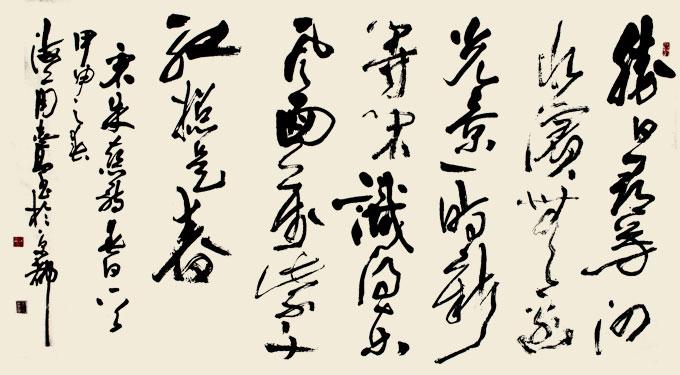 勝日尋芳泗
水濱無邊
光景一時新
等閒識得東
風面萬紫千
紅總是春
宋朱熹詩春日一首
甲申之春
海上周志高書於京